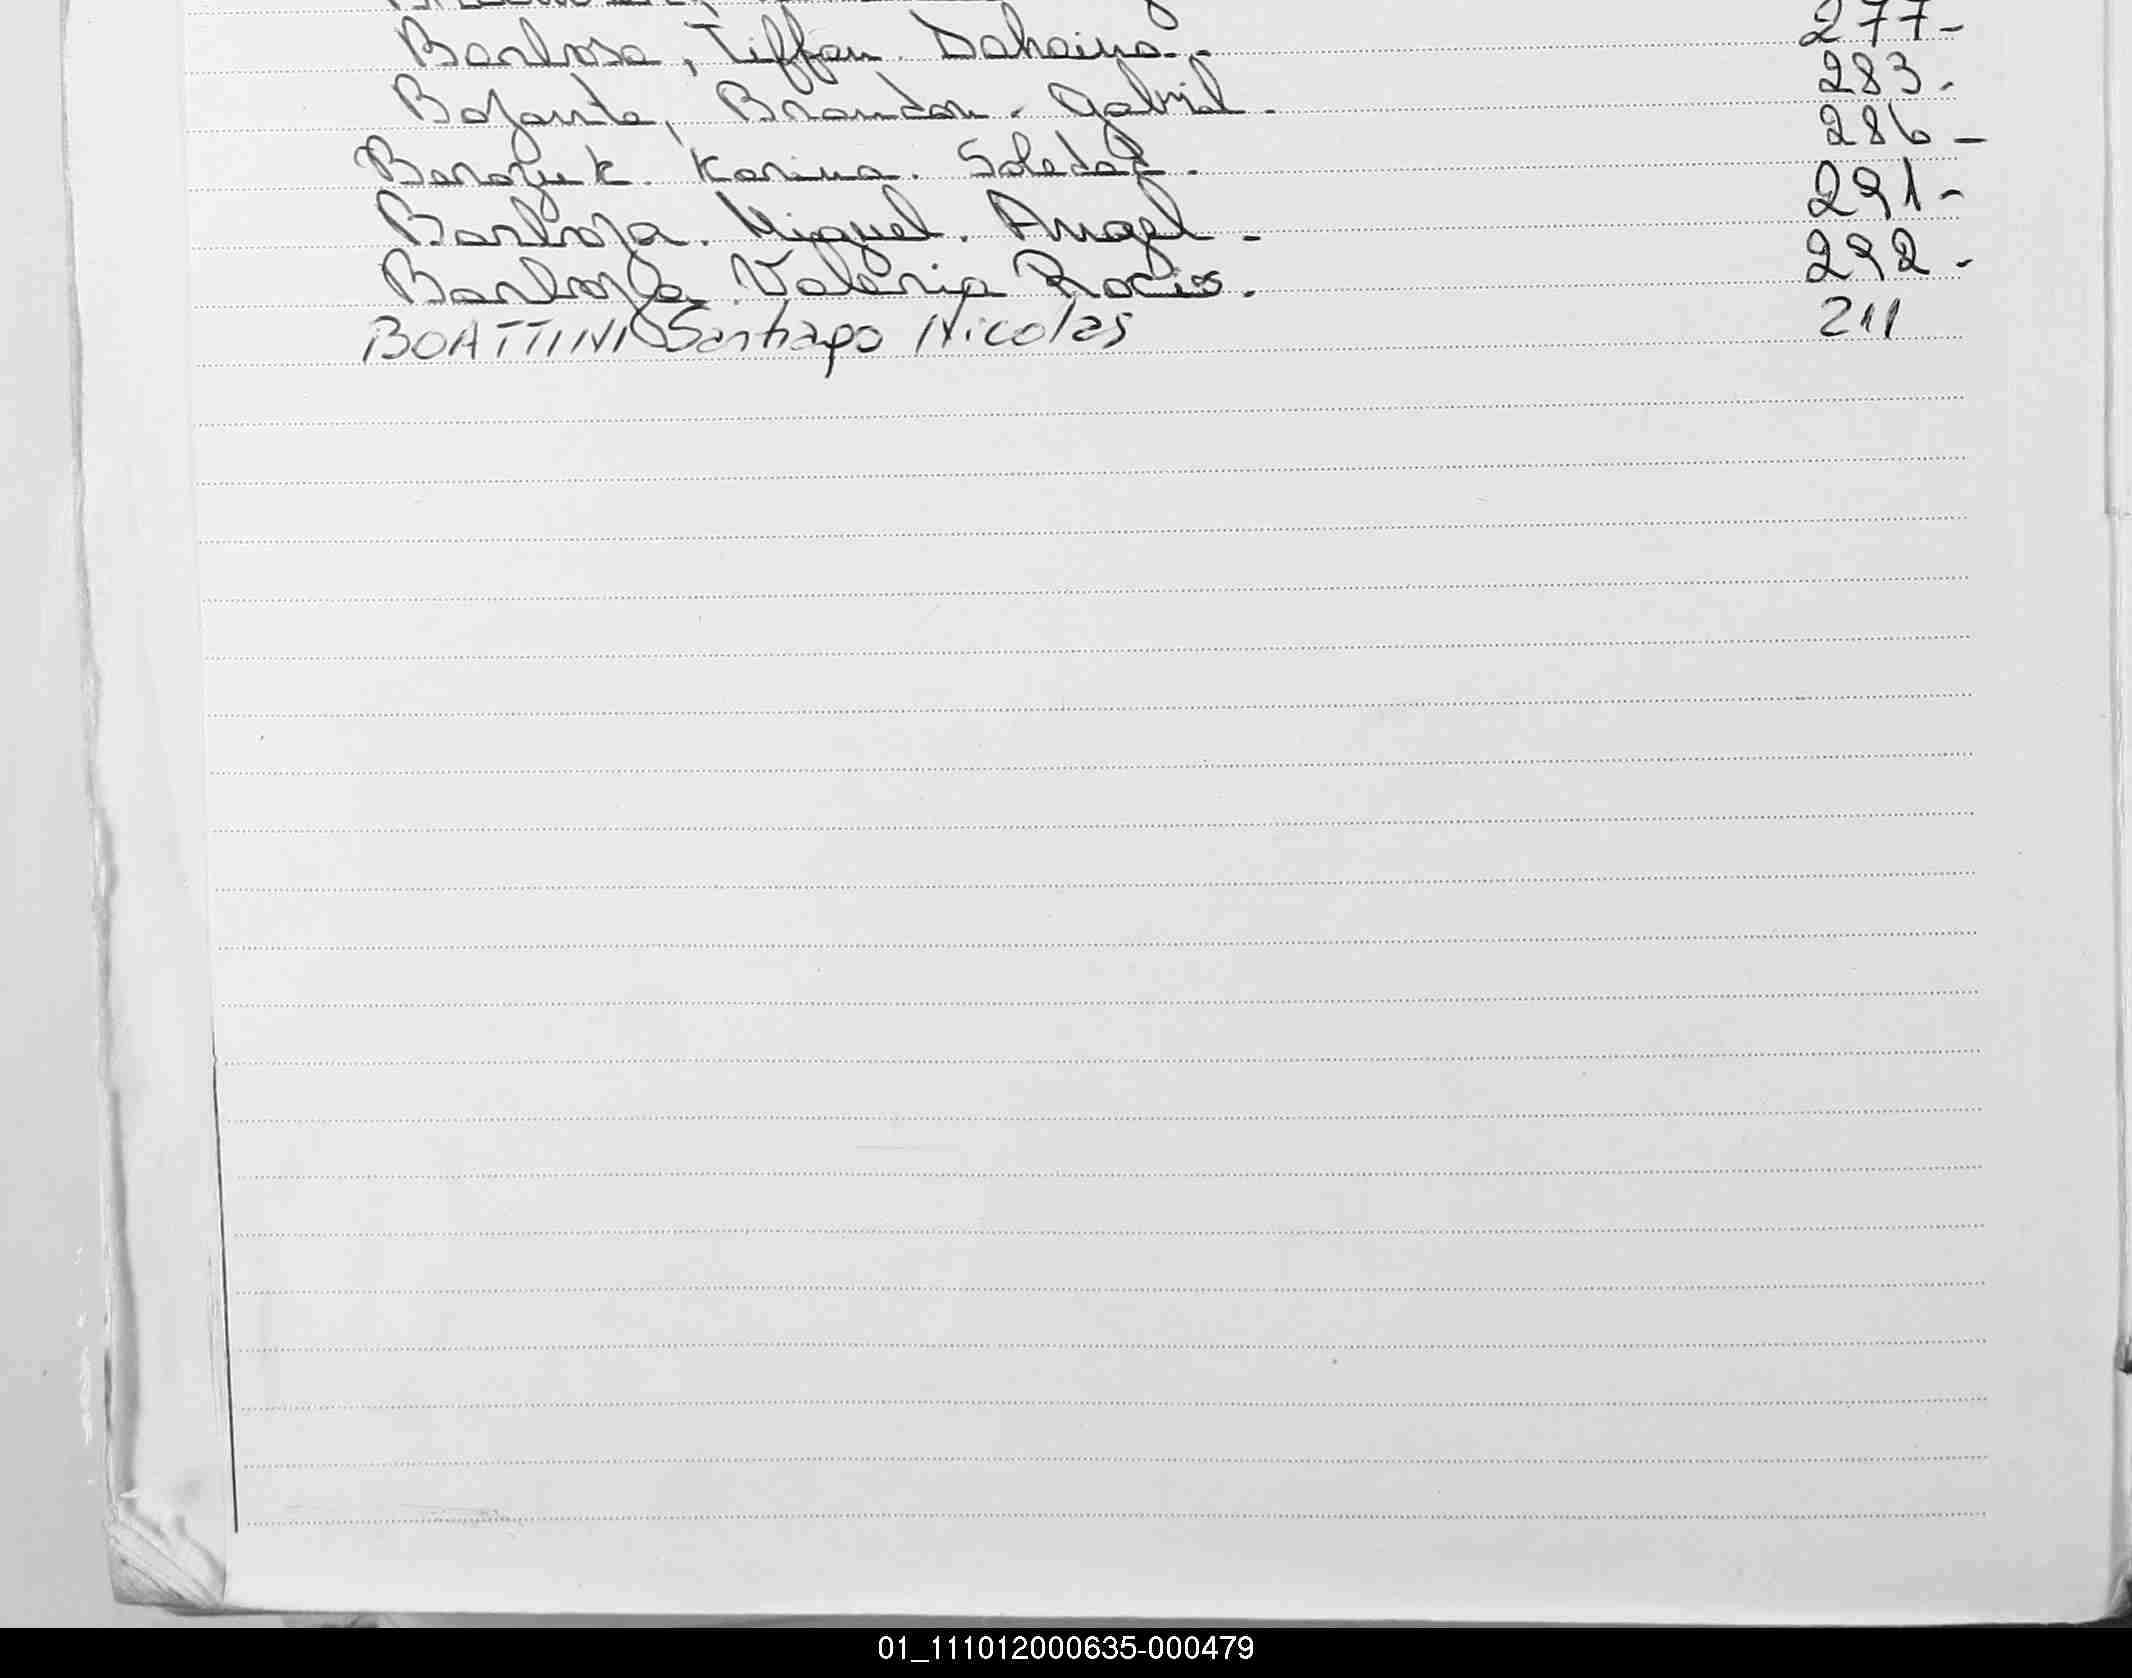 Barbosa, Tiffan Dahaina.- 277-
Bazante, Brandon. Gabriel. 283-
Barazuk. Karina. Soledad. 286-
Barboza. Miguel. Angel - 291-
Barboza. Valeria Rocio. 292-
BOATTINI Santiago Nicolas 211
01_111012000635-000479